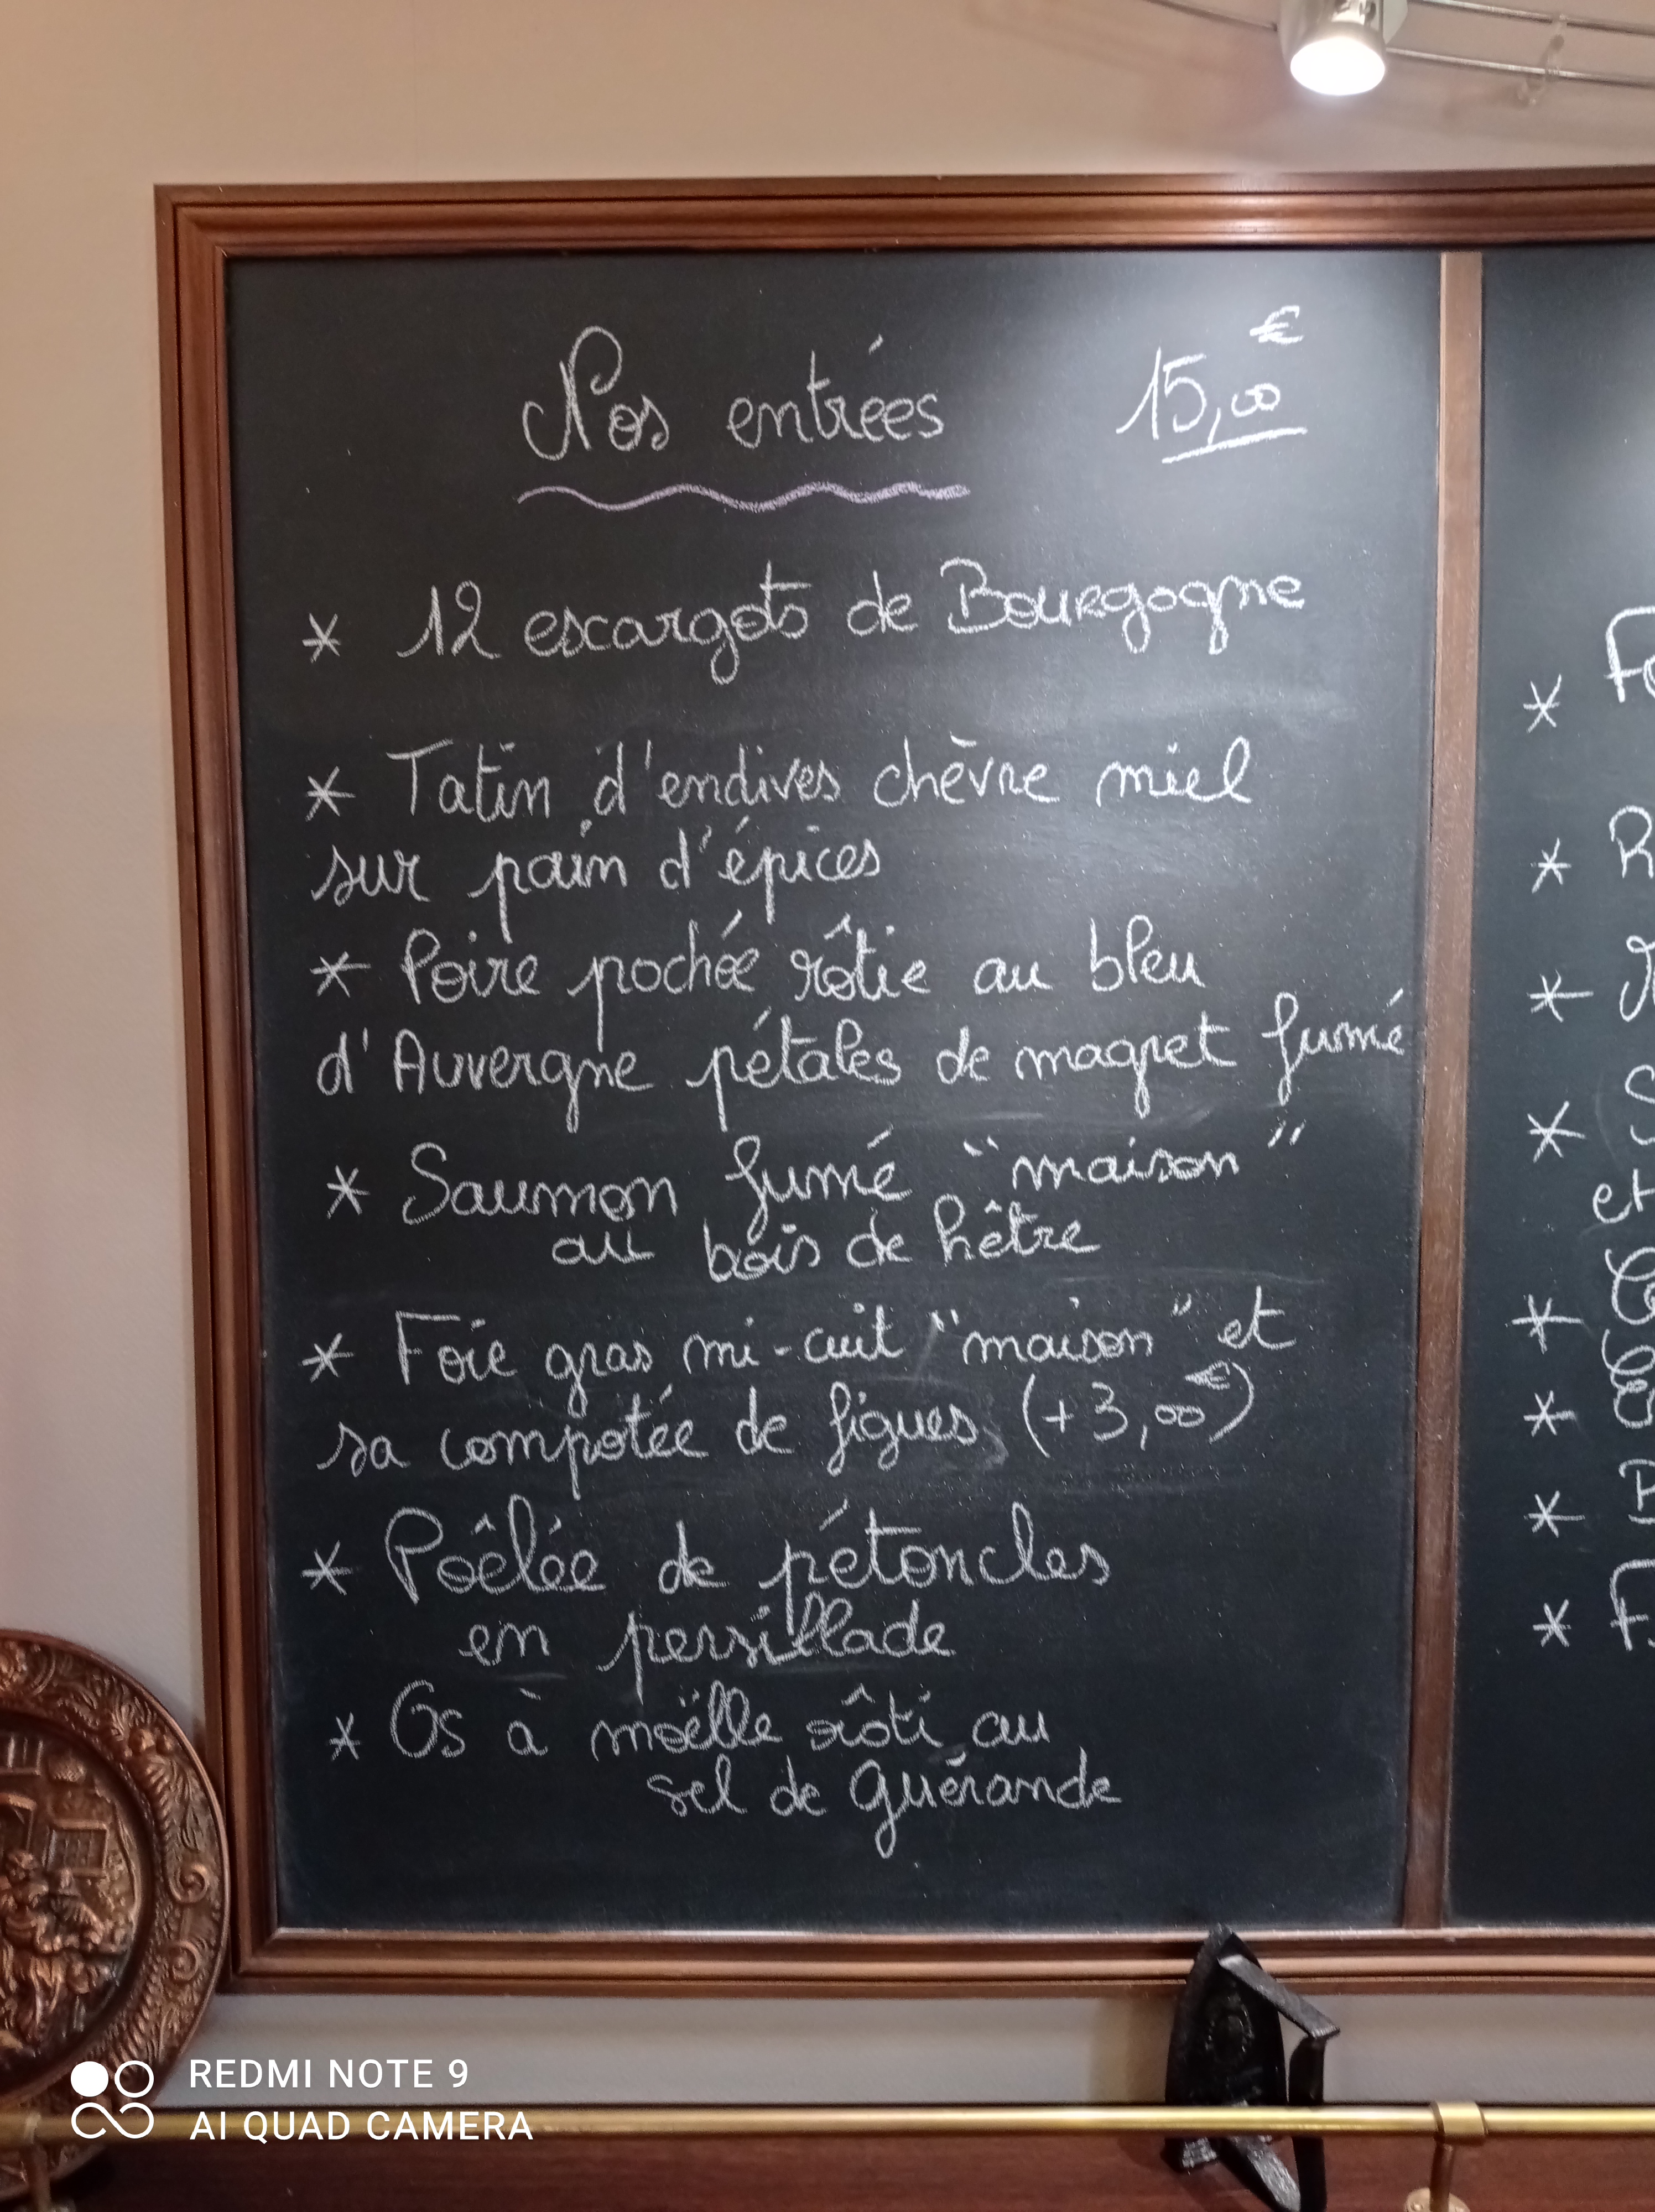 Nos entrées 15,00 €
* 12 escargots de Bourgogne
* Tatin d'endives chèvre miel
sur pain d'épices
* Poire pochée rôtie au bleu
d'Auvergne pétales de magret fumé
* Saumon fumé "maison"
au bois de hêtre
* Foie gras mi-cuit "maison" et
sa compotée de figues (+3,00€)
* Poêlée de pétoncles
en persillade
* Os à moëlle rôti au
sel de Guérande
REDMI NOTE 9
AI QUAD CAMERA